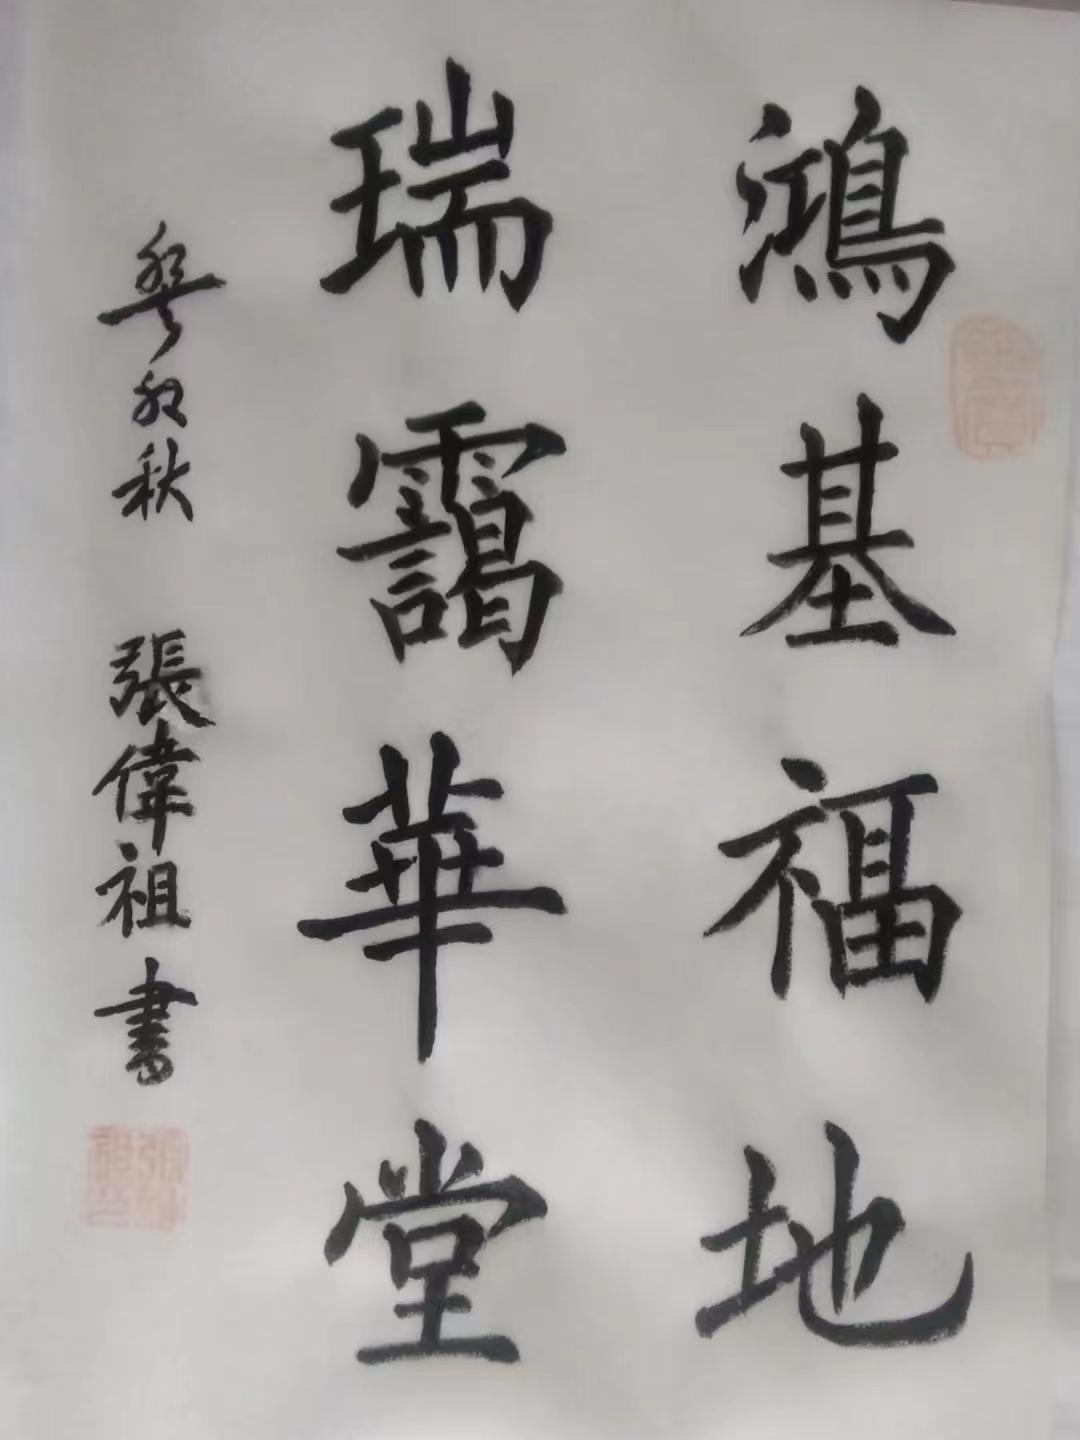 鴻基福地
瑞靄華堂
癸卯秋 張偉祖書